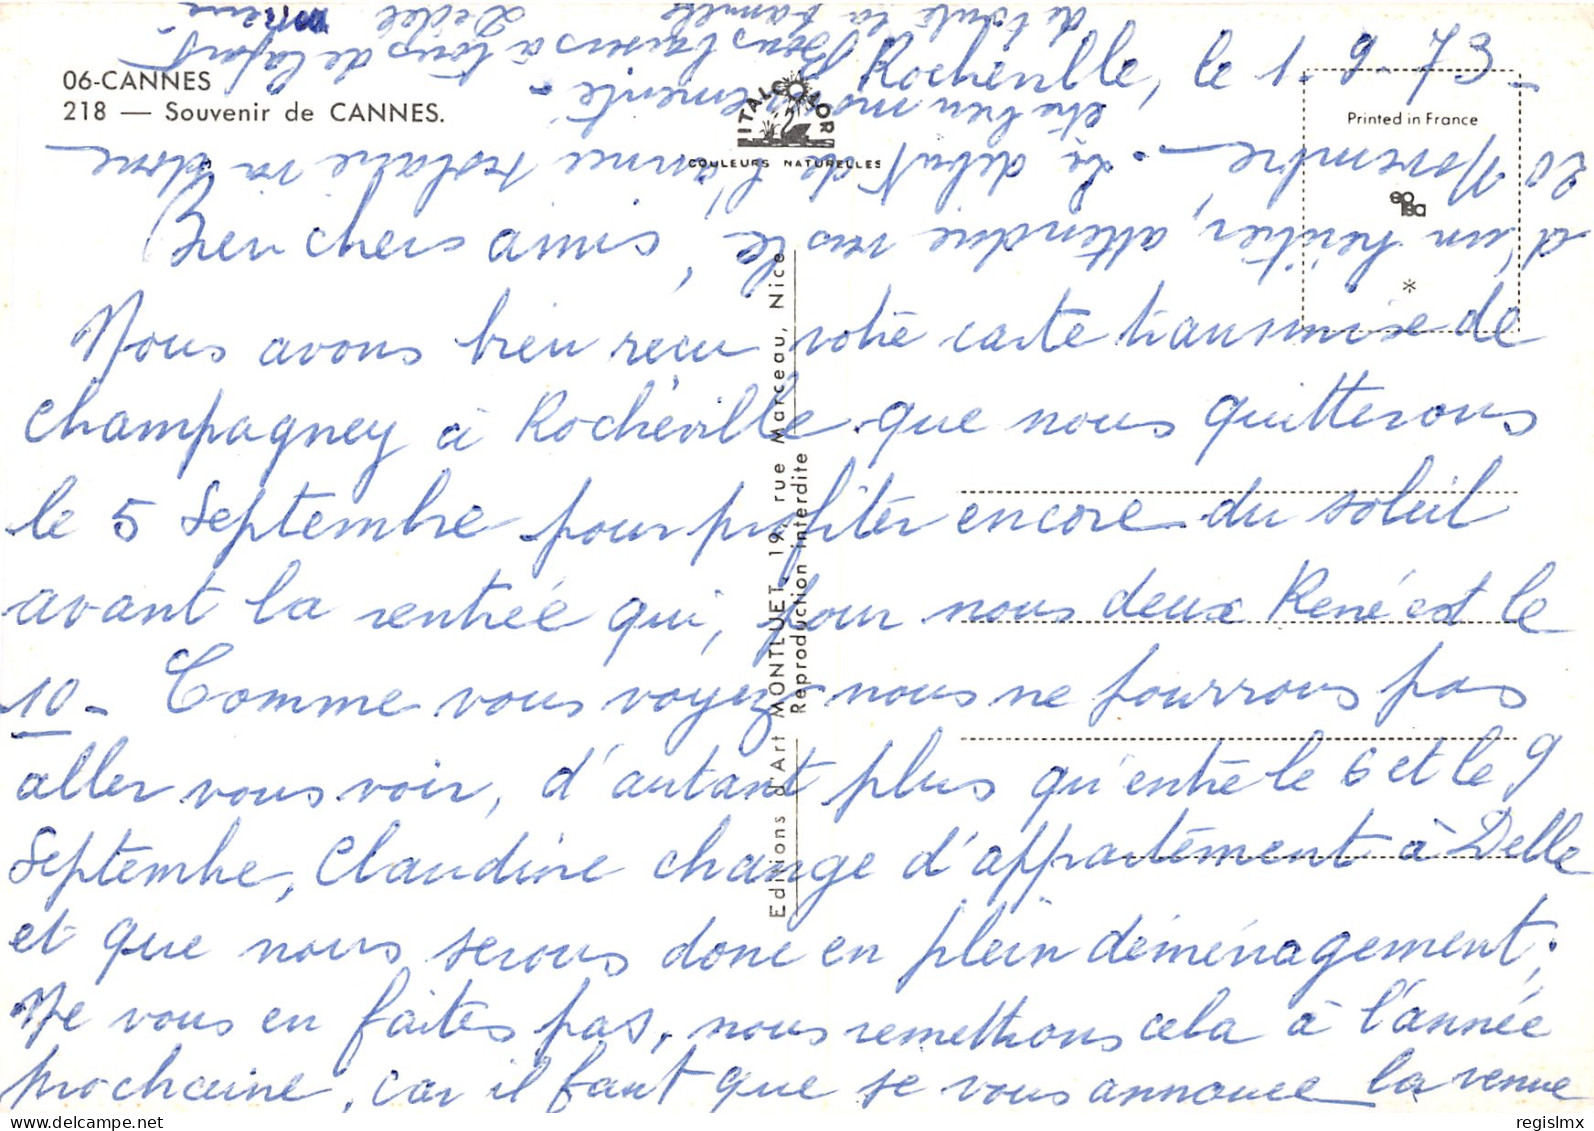 06-CANNES
218 — Souvenir de CANNES.
ITALCOLOR
COULEURS NATURELLES
Printed in France
*
Editions d'Art MONTLUET, 19, rue Marceau, Nice
Reproduction interdite
Rocheville, le 1-9-73-
Bien chers amis,
Nous avons bien reçu votre carte transmise de
Champagney à Rocheville que nous quitterons
le 5 Septembre pour profiter encore du soleil
avant la rentrée qui, pour nous deux René est le
10- Comme vous voyez nous ne pourrons pas
aller vous voir, d'autant plus qu'entre le 6 et le 9
Septembre, Claudine change d'appartement à Delle
et que nous serons donc en plein déménagement;
Ne vous en faites pas, nous remettrons cela à l'année
prochaine, car il faut que je vous annonce la venue
d'un héritier, attendue vers le
20 Novembre - Le début de l'année scolaire va donc
être bien mouvementé -
Bons baisers à tous de la part
de toute la famille